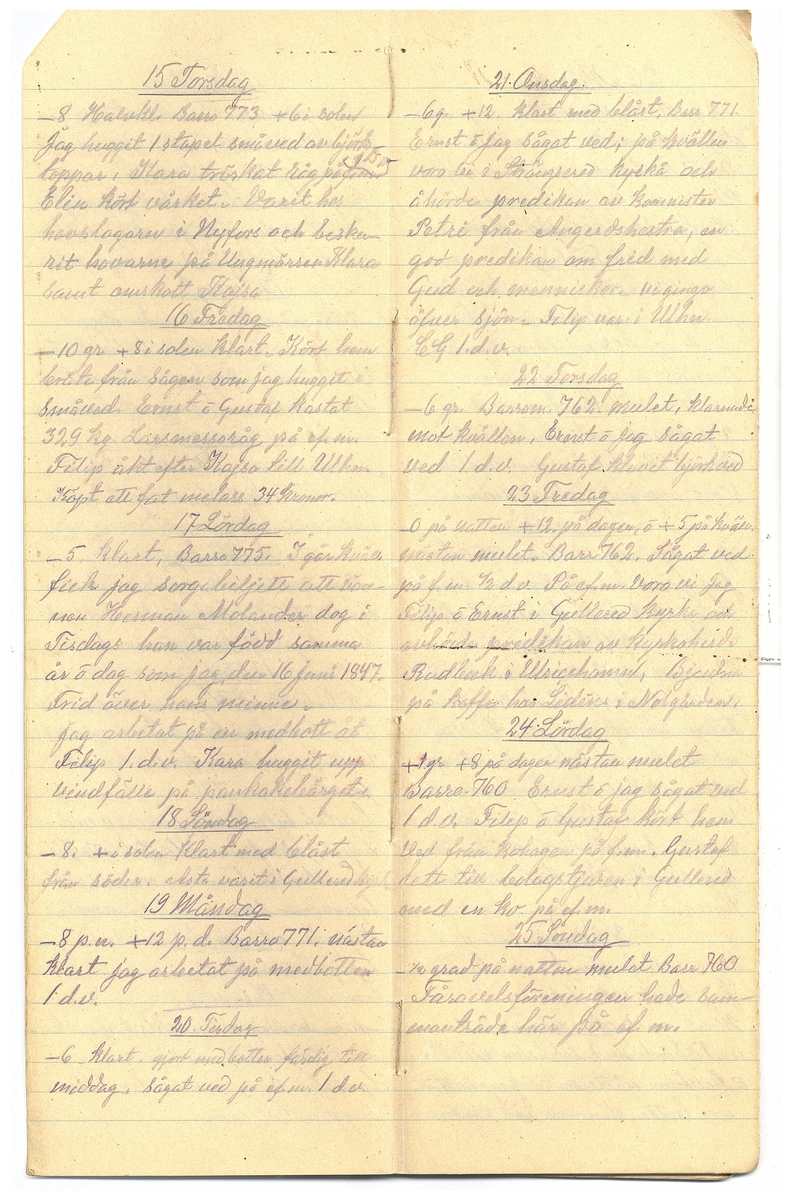 15 Torsdag
-8 Halvkl. Barro 773 +6 i solen
Jag huggit 1 stapel småved av björk-
toppar, Klara tröskat Råg på
Elin kört värket. Varit hos
hovslagarn i Nyfors och besku-
rit hovarne på Ungmärren Klara
samt omskott Kajsa
16 Fredag
-10 gr +8 i solen klart. Kört hem
bröte från sågen som jag huggit i
småved. Ernst o Gustaf kastat
329 kg. Larsmessoråg, på ef.m.
Filip åkt efter Kajsa till Ulhn.
Köpt ett fat melass 34 Kronor.
17 Lördag
-5, klart, Barro 775. I går kväll
fick jag sorgebiljett att vän-
nen Herman Molander dog i
Tisdags han var född samma
år o dag som jag, den 16 juni 1847.
Frid över hans minne.
Jag arbetat på en medbott åt
Filip 1.d.v. Kara huggit upp
vindfälle på pankakebärget.
18 Söndag
-8. + i solen Klart med blåst
från söder. Asta varit i Gullered
19 Måndag
-8 p.n. +12 p.d. Barro 771. nästan
klart jag arbetat på medbotten
1 d.v.
20 Tisdag
-6 klart. gjort medbotten färdig till
middag. Sågat ved på ef.m. 1 d.v.
21. Onsdag.
-6 g. +12. klart med blåst, Barr 771.
Ernst o Jag sågat ved; på kvällen
voro en i Strängsered kyrka och
åhörde predikan av Komminister
Petri från Angerdshestra, en
god predikan om frid med
Gud och menniskor. vi gingo
öfver sjön. Filip var i Ulhn.
EG 1.d.v.
22 Torsdag
-6 gr. Barrom. 762. mulet, klarnade
mot kvällen, Ernst o jag sågat
ved 1 d.v. Gustaf kluvet björkved
23 Fredag
-0 på natten +12, på dagen, o +5 på kväll.
nästan mulet. Barr 762. Sågat ved
på f.m. ½ d.v. På ef.m. voro vi Jag
Filip o Ernst i Gullered Kyrka och
avhörde predikan av kyrkoherde
Rudbeck i Ulricehamn, Bjudna
på kaffe hos Lidéns i Nolgården.
24 Lördag
+1 gr. +8 på dagen nästan mulet
Barro 760 Ernst o jag sågat ved
1 d.v. Filip o Gustav kört hem
ved från kohagen på f.m. Gustaf
lett till bolagstjuren i Gullered
med en ko. på ef.m.
25 Söndag
grad på natten mulet Barr 760
Fåravelsföreningen hade sam-
manträde här på ef.m.